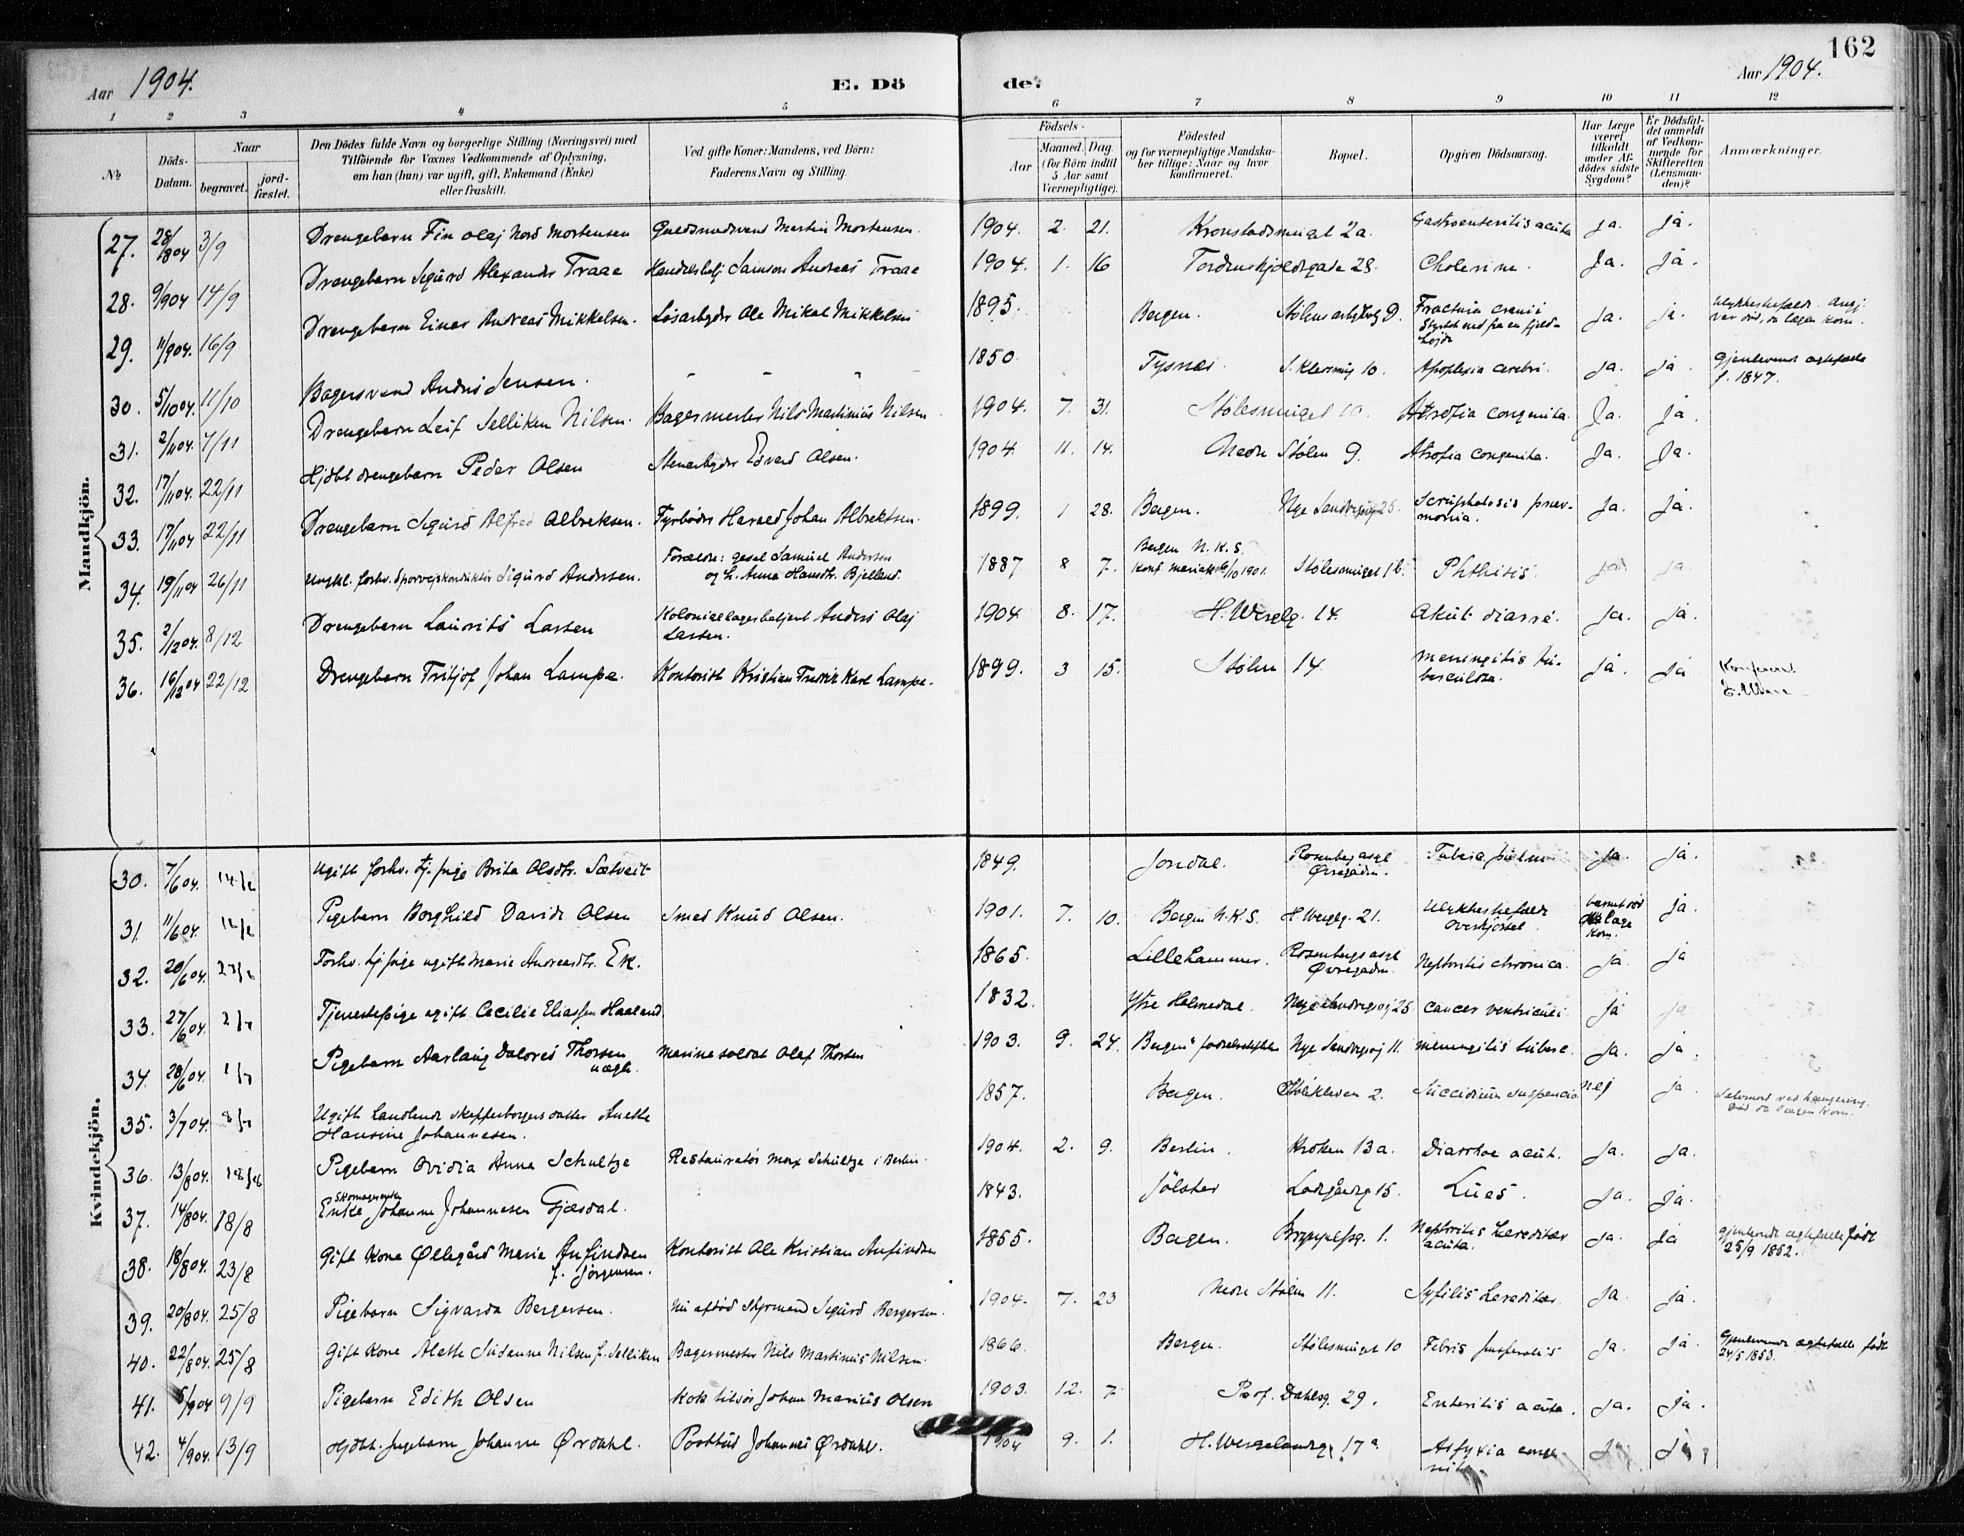 162
Aar 1904. E. Dö de. Aar 1904.
1 2 3 4 5 6 7 8 9 10 11 12
No. Döds-Datum. Naar begravet. jord-fæstet. Den Dödes fulde Navn og borgerlige Stilling (Næringsvei) med Tilföiende for Voxnes Vedkommende af Oplysning, om han (hun) var ugift, gift, Enkemand (Enke) eller fraskilt. Ved gifte Koner: Mandens, ved Börn: Faderens Navn og Stilling. Födsels- Aar Maaned. Dag. (for Börn indtil 5 Aar samt Værnepligtige). Födested og for værnepligtige Mandskaber tillige: Naar og hvor konfirmeret. Bopæl. Opgiven Dödsaarsag. Har Læge været tilkaldt under Afdödes sidste Sygdom? Er Dödsfaldet anmeldt af Vedkommende for Skifteretten (Lensmanden)? Anmærkninger.
Mandkjön.
27. 28/8 04 3/9 Drengebarn Fin Olaj Nord Mortensen Guldsmedsvend Martin Mortensen. 1904. 2. 21. Kronstadsmuget 2a. Gastroenteritis acuta ja. ja.
28. 9/9 04 14/9 Drengebarn Sigurd Alexander Traae Handelsbetj Samson Andreas Traae 1904. 1. 16 Tordenskjoldsgade 28. Cholerine. Ja. ja.
29. 11/9 04. 16/9 Drengebarn Einar Andreas Mikkelsen. Løsarbejder Ole Mikal Mikkelsen 1895. Bergen. 9. Fractura cranii Styrtet ned fra en fjeld-højde ja. ja. Ulykkestilfælde. var død, da lægen kom.
30. 5/10 04. 11/10 Bagersvend Anders Jensen. 1850. Tysnes 10. Apoplexia cerebri. ja. ja. Gjenlevende ægtefælle f. 1847.
31. 2/11 04. 7/11 Drengebarn Leif Selliken Nilsen. Bagermester Nils Martinius Nilsen 1904. 7. 31. Stølesmuget 10. Atrofia congenita. Ja. ja.
32. 17/11 04. 22/11 Hjdbt drengebarn Peder Olsen Stenarbejder Edvard Olsen. 1904 11. 14. Nedre Stølen 9. Atrofia congenita. Ja. Ja.
33. 17/11 04 22/11 Drengebarn Sigurd Alfred Albrektsen. Fyrbøder Harald Johan Albrektsen. 1899. 1 28. Bergen. Nye Sandvigsvej 25. Scrophulosis pneumonia. Ja. ja.
34. 19/11 04 26/11 Ungkl. forhv. Sporvejskonduktør Sigurd Andersen. Forældre: gesel Samuel Andersen og h. Anna Hansdtr. Bjelland. 1887 8 7. Bergen N.K.S. Konf. Mariak. 6/10 1901. Stølesmuget 1b. Phthisis. ja. ja.
35. 2/12 04. 8/12 Drengebarn Laurits Larsen Koloniallagerbetjent Anders Olaj Larsen. 1904 8. 17. H. Wergelg. 14. Akut diarré. ja. ja.
36. 16/12 04 22/12 Drengebarn Fritjof Johan Lampe. Kontorist Kristian Fredrik Karl Lampe. 1899. 3 15. Stølen 14. Meningitis tuberculosa. ja ja
Kvindekjön.
30. 7/6 04. Ugift forhv. tj. pige Brita Olsdtr. Sætveit 1849. Jondal. Rosenbergasyl Øvregaden. ja. ja.
31. 11/6 04. Pigebarn Borghild Davide Olsen Smed Knud Olsen. 1901. 7. 10. Bergen N.K.S. H. Wergelg. 21. Ulykkestilfælde Overkjørsel. barnet død før læge kom. ja.
32. 20/6 04. Forhv. tj. pige ugift Marie Andreasdtr. Ek. 1865. Lillehammer. Rosenbergasyl Øvregaden. Nefritis chronica. ja. ja
33. 27/6 04. 2/7 Tjenestepige ugift Cecilie Eliassen Haaland 1832. Ytre Holmedal. Nye Sandvigsvej 25 Cancer ventriculi. ja ja
34. 28/6 04. 1/7 Pigebarn Aaslaug Dolores Thorsen uægte. Marinesoldat Olaf Thorsen 1903. 9. 24. Bergens fødselsstiftelse Nye Sandvigsvej 11. Meningitis tuberc. ja. ja.
35. 3/7 04. 8/7 Ugift datter Anette Hansine Johannesen. 1857. Bergen. Stølekleven 2. Suicidium suspensio nej ja. Selvmord ved hængning. Død da lægen kom.
36. 13/8 04. Pigebarn Ovidia Anna Schultze Restauratør Max Schultze i Berlin. 1904. 2. 9. Berlin. Kroken 13a. Diarrhoe acut. ja. ja.
37. 14/8 04. 18/8 Enke Johanne Johannesen Gjæsdal. 1843. Jølster Ladegårdsg 15. Lues. ja. ja.
38. 18/8 04. 23/8 Gift Kone Øllegård Marie Anfindsen f. Jørgensen. Kontorist Ole Kristian Anfindsen 1855. Bergen. 1. Nefritis hereditær acuta. ja. ja Gjenlevende ægtefælle født 25/9 1852.
39. 20/8 04. 25/8 Pigebarn Sigvarda Bergersen. Nu afdød Styrmand Sigurd Bergersen. 1904. 7. 23 Nedre Stølen 11. Syfilis hereditær. ja. ja.
40. 22/8 04. 25/8 Gift Kone Alette Susanne Nilsen f. Selliken Bagermester Nils Martinius Nilsen. 1866. Bergen. Stølesmuget 10 Febris puerperalis ja. ja. Gjenlevende ægtefælle født 24/5 1853.
41. 5/9 04 9/9 Pigebarn Edith Olsen Johan Marius Olsen 1903. 12. 7 Prof. Dahlsg. 29. Enteritis acuta. ja. ja.
42. 4/9 04. 13/9 Hjdbt. pigebarn Johanne Ørdahl. Postbud Johannes Ørdahl. 1904 9. 1. H. Wergelandsg. 17a Asfyxia congenita ja ja